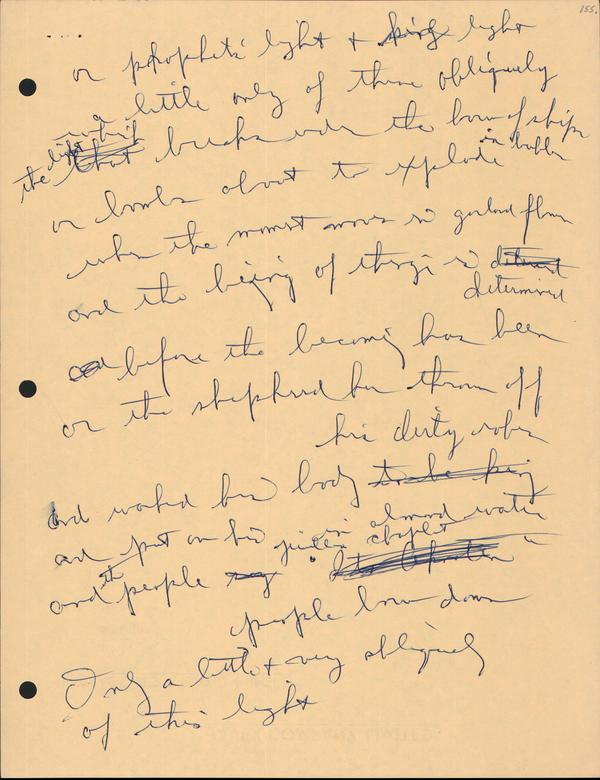 155.
....
or prophets' light + king light
a little only of these obliquely
the light that breaks under the bow of ships
or bombs about to explode in bubbles
when the moment moves in garland flame
and the being of things is determined
before the becoming has been
or the shepherd has thrown off
his dirty robes
and washed his body to be king
in almond water
and put on his chaplet
and the people
people bow down
Only a little + very obliquely
of this light